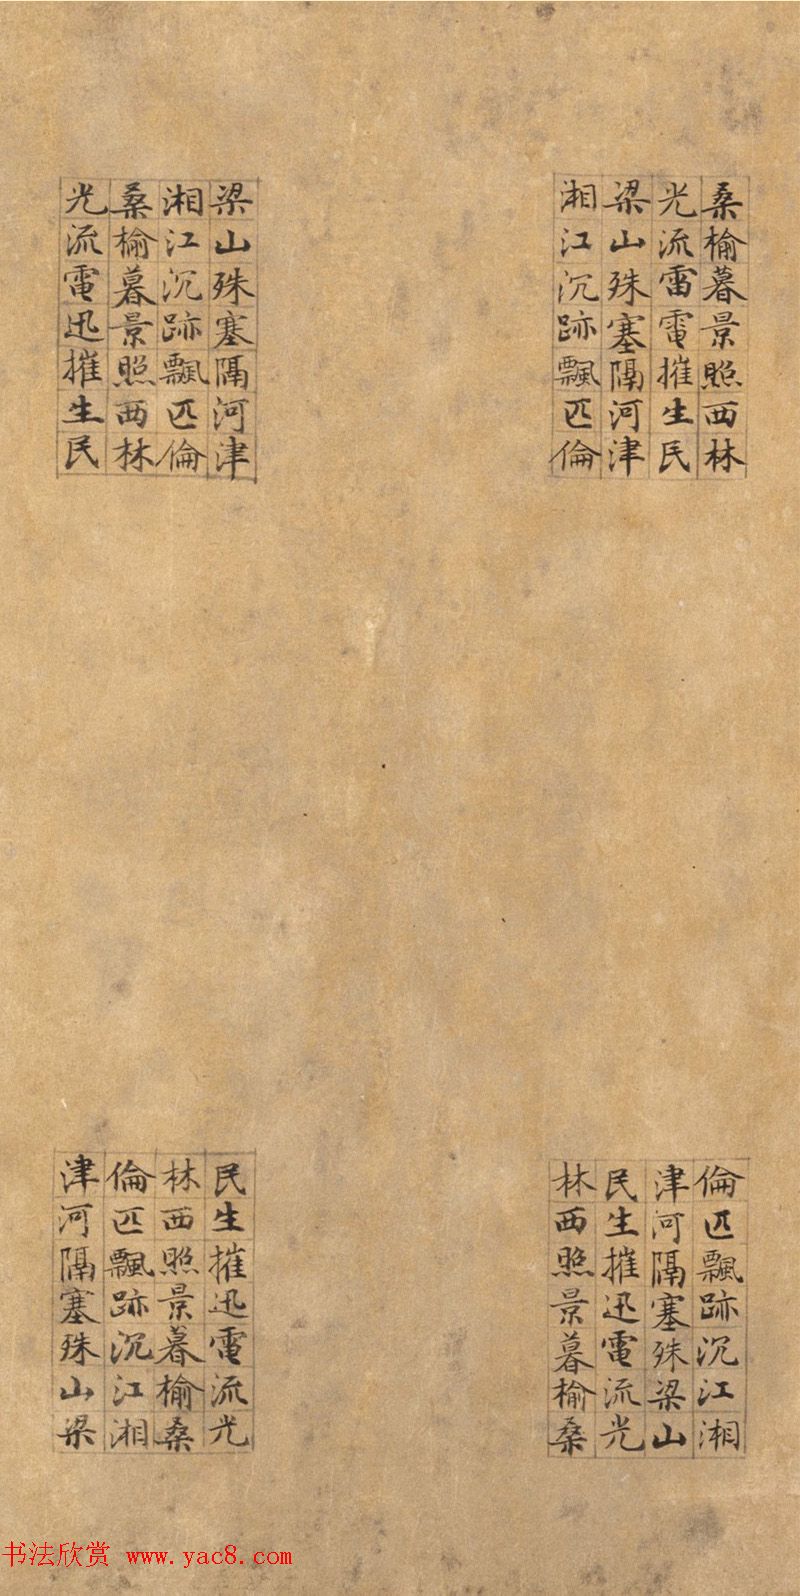 桑榆暮景照西林
光流雷電摧生民
梁山殊塞隔河津
湘江沉跡飄匹倫
梁山殊塞隔河津
湘江沉跡飄匹倫
桑榆暮景照西林
光流電迅摧生民
倫匹飄跡沉江湘
津河隔塞殊梁山
民生摧迅電流光
林西照景暮榆桑
民生摧迅電流光
林西照景暮榆桑
倫匹飄跡沉江湘
津河隔塞殊山梁
书法欣赏 www.yac8.com